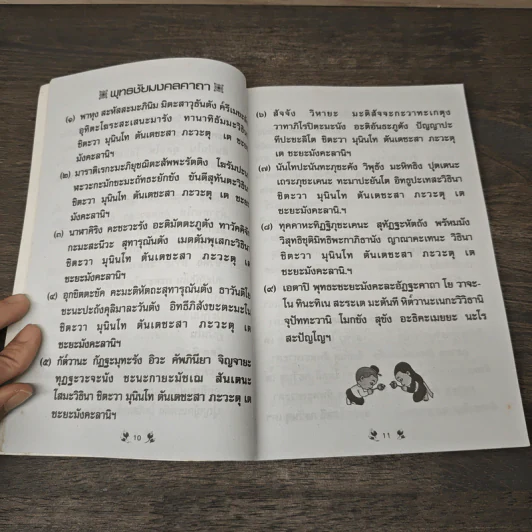 พุทธชัยมงคลคาถา
(๑) พาหุง สะหัสสะมะภินิม มิตะสาวุธันตัง ครีเมขะลัง
อุทิตะโฆระสะเสนะมารัง ทานาทิธัมมะวิธินา
ชิตะวา มุนินโท ตันเตชะสา ภะวะตุ เต
มังคะลานิฯ
(๒) มาราติเรกะมะภิยุชฌิตะสัพพะรัตติง โฆรัมปะนา
ฬะวะกะมักขะมะถัทธะยักขัง ขันตีสุทันตะวิธินา
ชิตะวา มุนินโท ตันเตชะสา ภะวะตุ เต
ชะยะมังคะลานิฯ
(๓) นาฬาคิริง คะชะวะรัง อะติมัตตะภูตัง ทาวัคคิจัก
กะมะสะนีวะ สุทารุณันตัง เมตตัมพุเสกะวิธินา
ชิตะวา มุนินโท ตันเตชะสา ภะวะตุ เต
ชะยะมังคะลานิฯ
(๔) อุกขิตตะขัค คะมะติหัตถะสุทารุณันตัง ธาวันติโย
ชะนะปะถังคุลิมาละวันตัง อิทธีภิสังขะตะมะโน
ชิตะวา มุนินโท ตันเตชะสา ภะวะตุ เต
ชะยะมังคะลานิฯ
(๕) กัต๎วานะ กัฏฐะมุทะรัง อิวะ คัพภินียา จิญจายะ
ทุฏฐะวะจะนัง ชะนะกายะมัชเฌ สันเตนะ
โสมะวิธินา ชิตะวา มุนินโท ตันเตชะสา ภะวะตุ เต
ชะยะมังคะลานิฯ
10
(๖) สัจจัง วิหายะ มะติสัจจะกะวาทะเกตุง
วาทาภิโรปิตะมะนัง อะติอันธะภูตัง ปัญญาปะ
ทีปะชะลิโต ชิตะวา มุนินโท ตันเตชะสา ภะวะตุ
เต ชะยะมังคะลานิฯ
(๗) นันโทปะนันทะภุชะคัง วิพุธัง มะหิทธิง ปุตเตนะ
เถระภุชะเคนะ ทะมาปะยันโต อิทธูปะเทสะวิธินา
ชิตะวา มุนินโท ตันเตชะสา ภะวะตุ เต
ชะยะมังคะลานิฯ
(๘) ทุคคาหะทิฏฐิภุชะเคนะ สุทัฏฐะหัตถัง พรัหมัง
วิสุทธิชุติมิทธิพะกาภิธานัง ญาณาคะเทนะ วิธินา
ชิตะวา มุนินโท ตันเตชะสา ภะวะตุ เต
ชะยะมังคะลานิฯ
(๙) เอตาปิ พุทธะชะยะมังคะละอัฏฐะคาถา โย วาจะ-
โน ทินะทิเน สะระเต มะตันที หิต๎วานะเนกะวิวิธานิ
จุปัททะวานิ โมกขัง สุขัง อะธิคะเมยยะ นะโร
สะปัญโญฯ
11